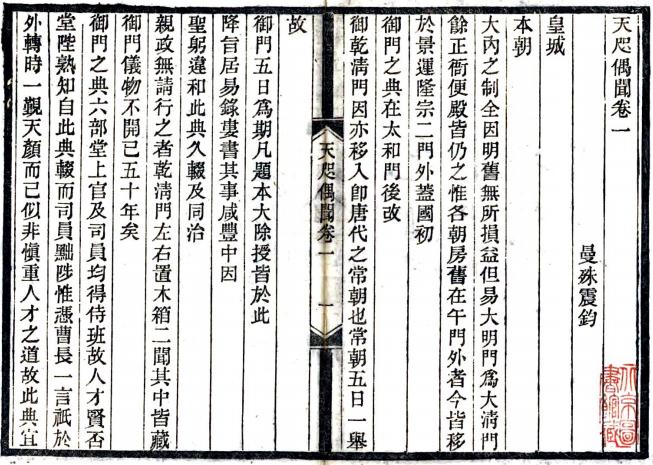 天咫偶聞卷一
曼殊震鈞
皇城
本朝
大內之制全因明舊無所損益但易大明門爲大淸門
餘正衙便殿皆仍之惟各朝房舊在午門外者今皆移
於景運隆宗二門外蓋國初
御門之典在太和門後改
御乾淸門因亦移入卽唐代之常朝也常朝五日一舉
天咫偶聞卷一
一
故
御門五日爲期凡題本大除授皆於此
降旨居易錄婁書其事咸豐中因
聖躬違和此典久輟及同治
親政無請行之者乾淸門左右置木箱二聞其中皆藏
御門儀物不開已五十年矣
御門之典六部堂上官及司員均得侍班故人才賢否
堂陛熟知自此典輟而司員黜陟惟憑曹長一言祇於
外轉時一覲天顏而已似非愼重人才之道故此典宜